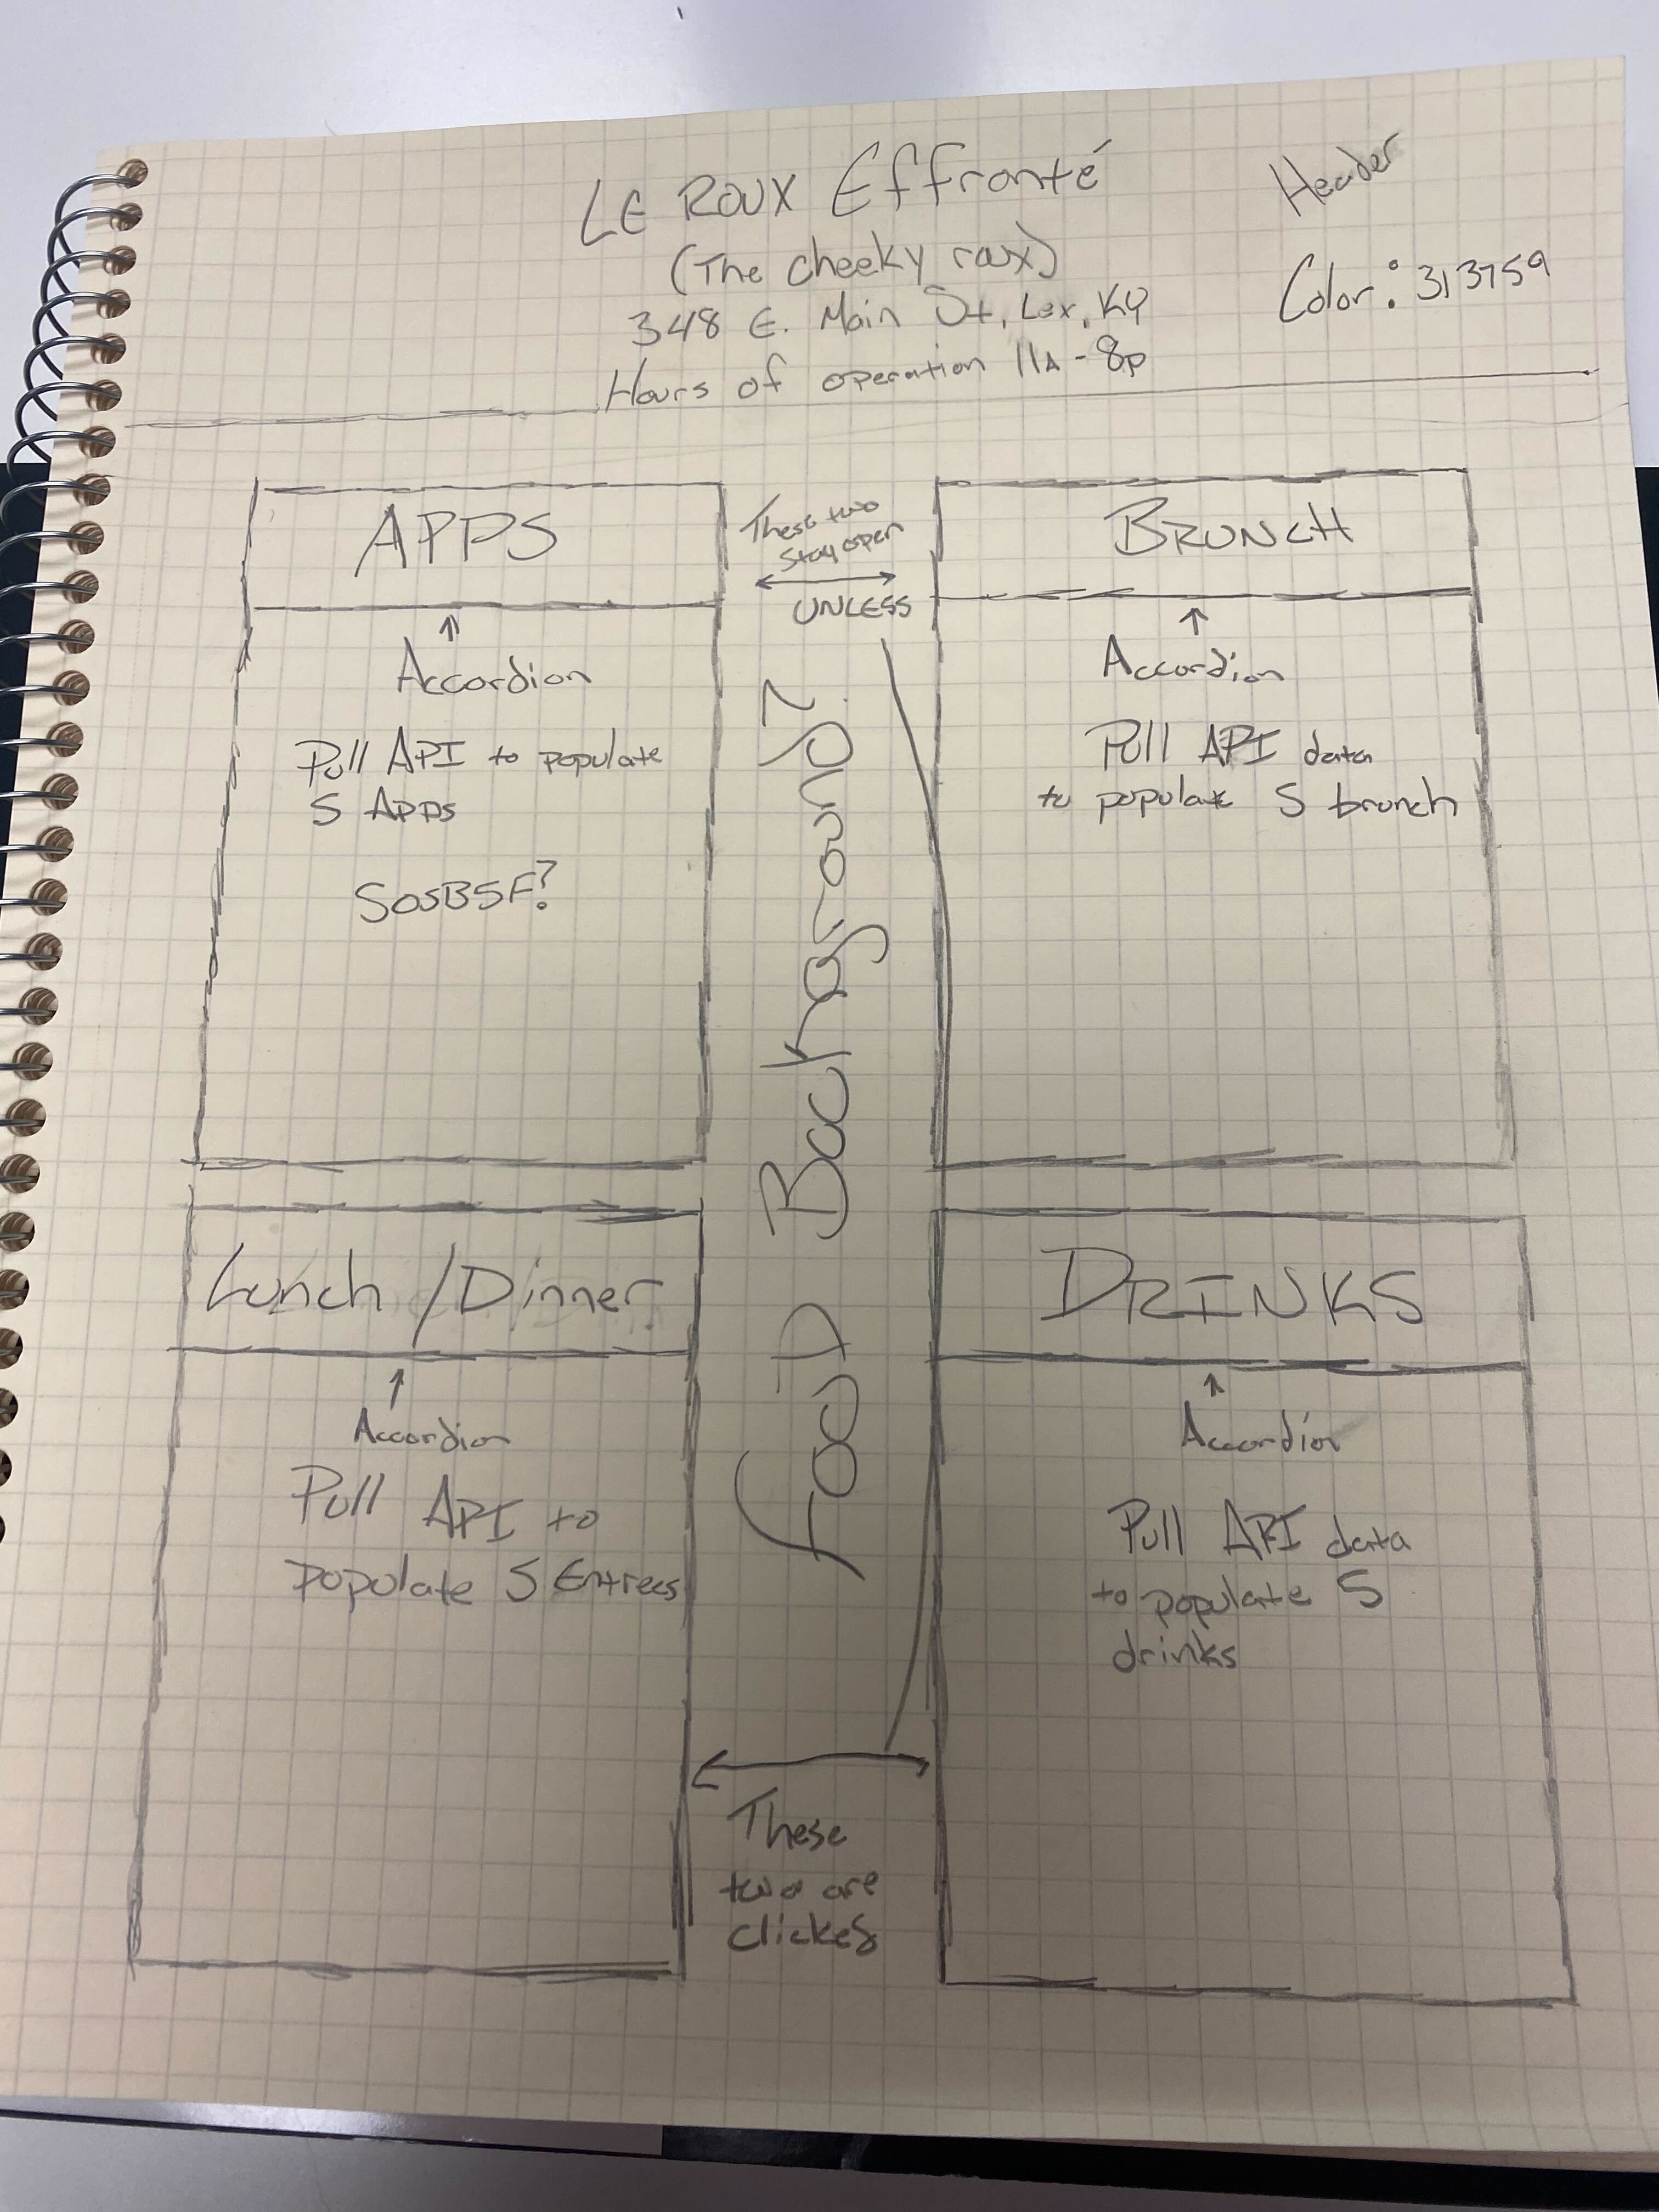 LE ROUX Effronté
(The cheeky roux)
348 E. Main St, Lex, KY
Hours of operation 11A - 8p
Header
Color: 313759
APPS
↑
Accordion
Pull API to populate
5 APPS
These two
stay open
UNLESS
BRUNCH
↑
Accordion
Pull API data
to populate 5 brunch
Food Background?
Lunch / Dinner
↑
Accordion
Pull API to
populate 5 Entrees
DRINKS
↑
Accordion
Pull API data
to populate 5
drinks
These
two are